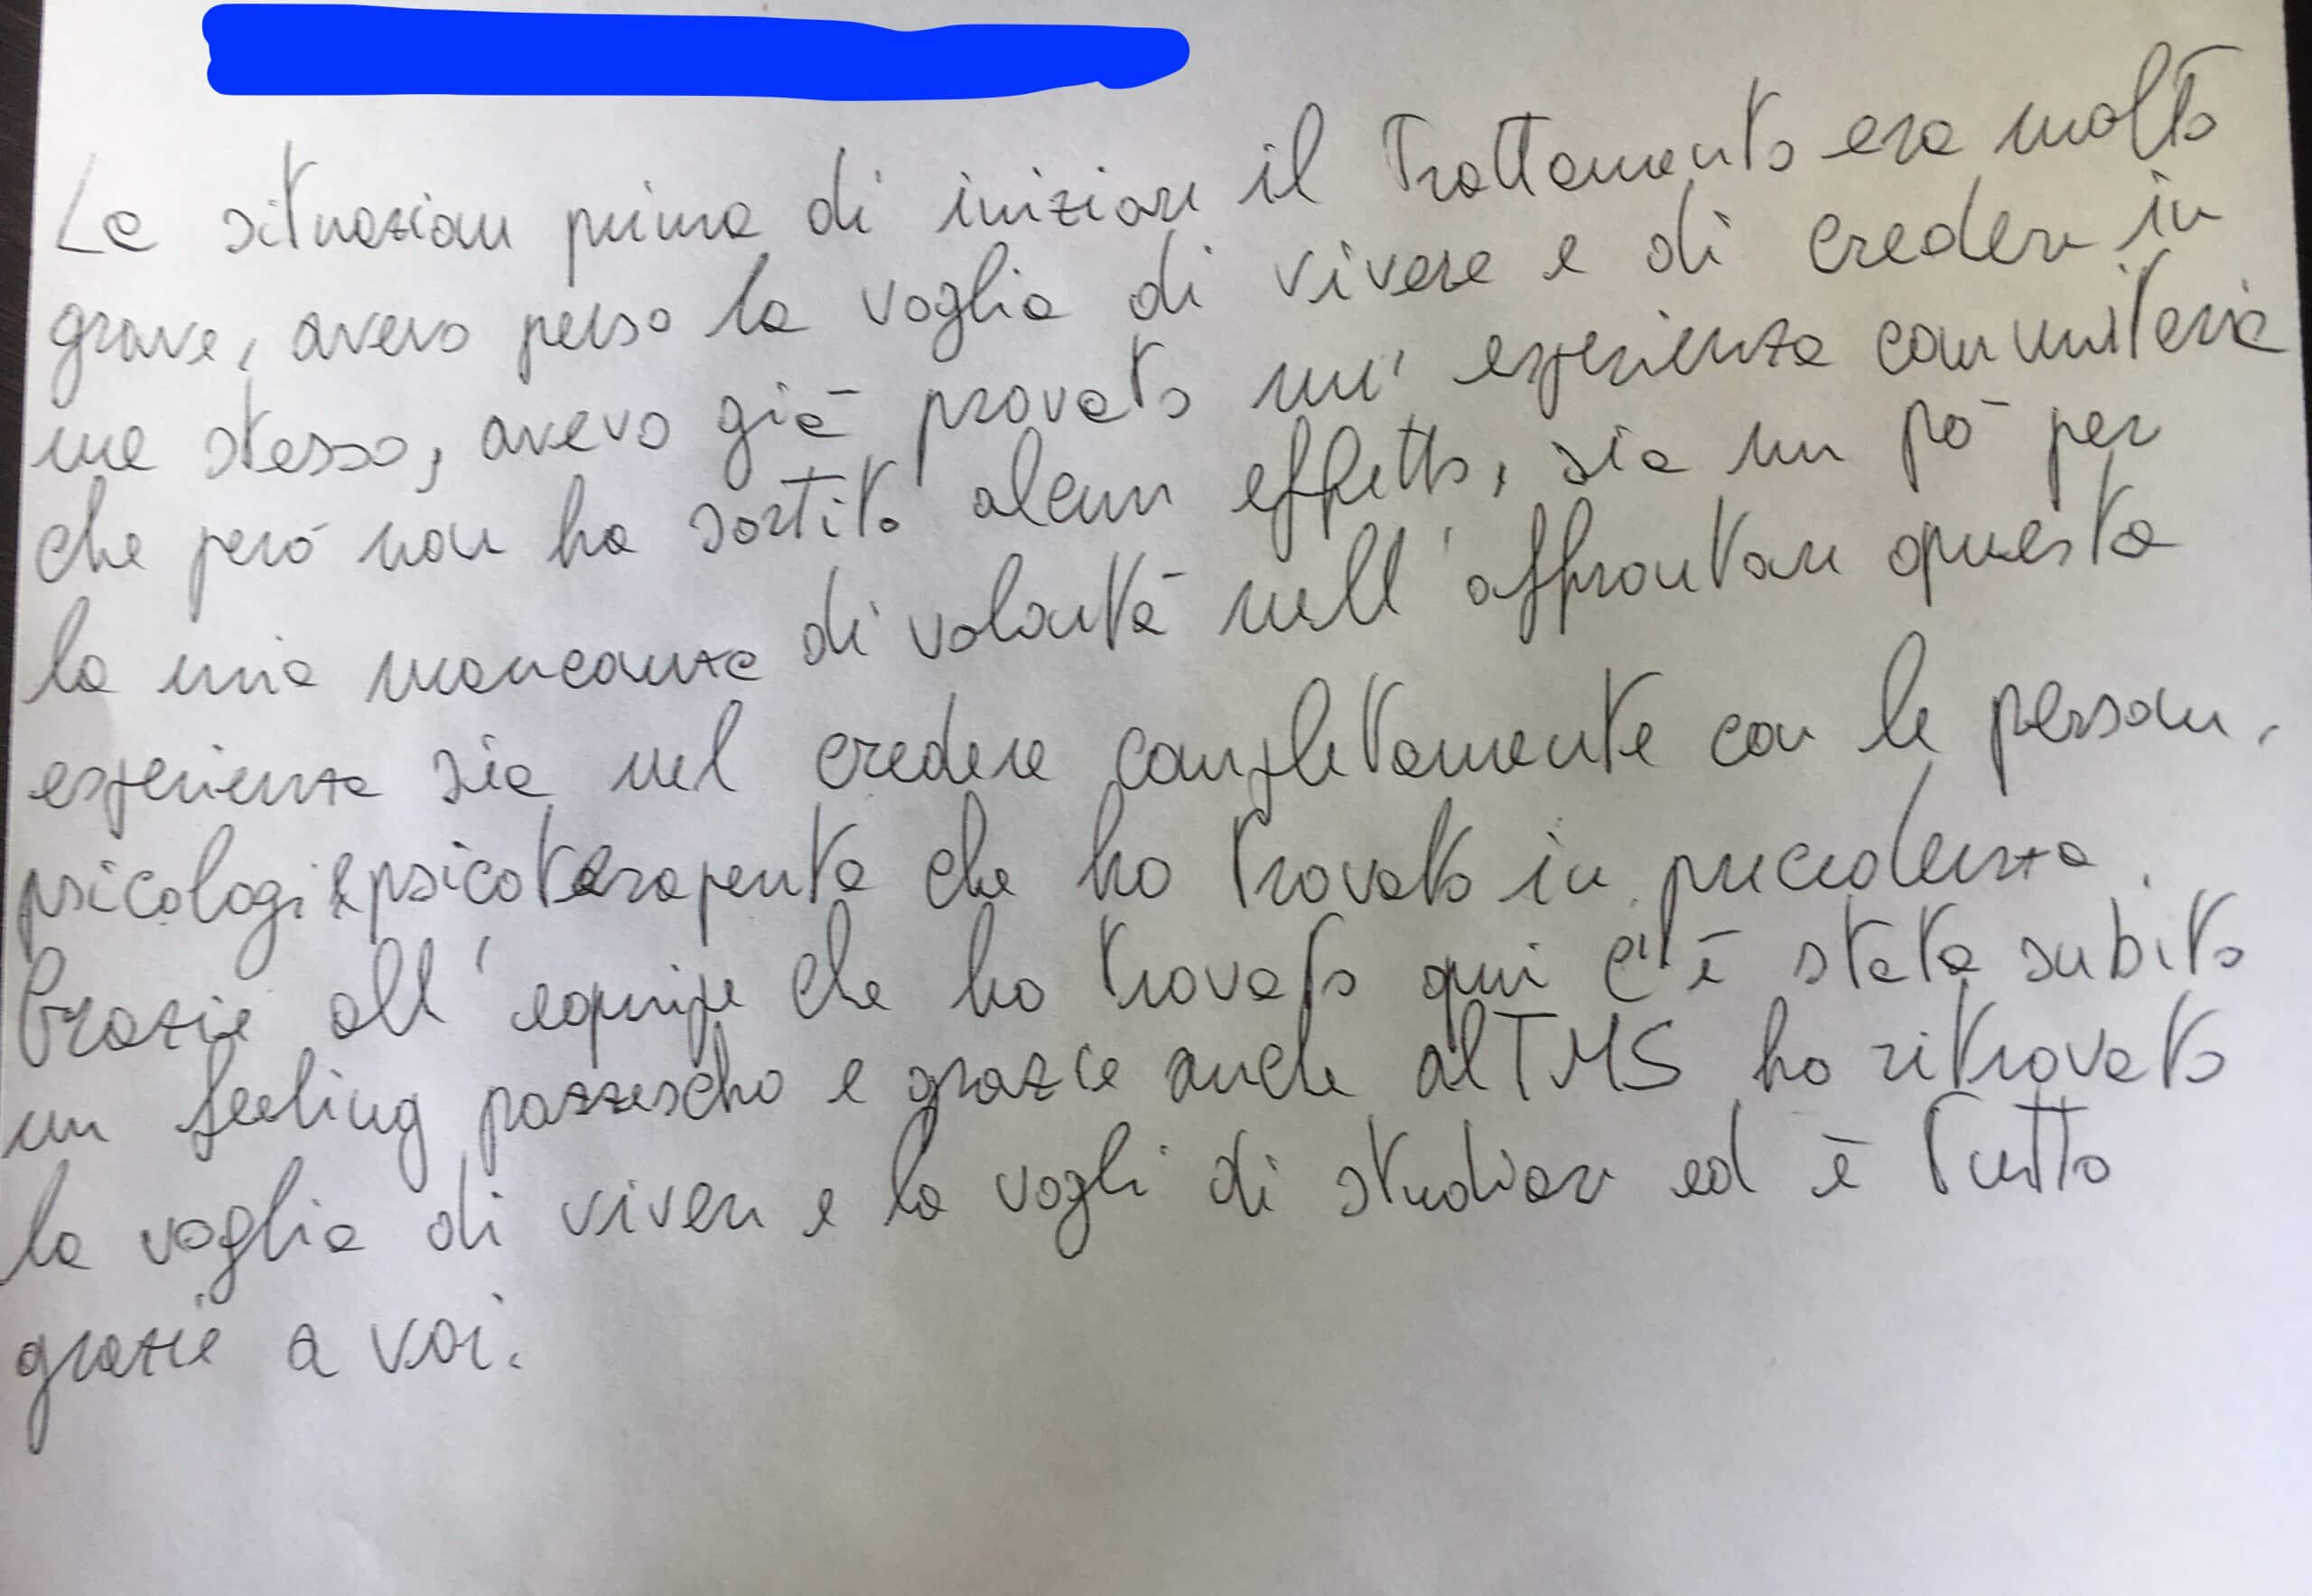 La situazione prima di iniziare il Trattamento era molto
grave, avevo perso la voglia di vivere e di credere in
me stesso, avevo già provato un' esperienza comunitaria
che però non ha sortito alcun effetto, sia un pò per
la mia mancanza di volontà nell' affrontare questa
esperienza sia nel credere completamente con le persone,
psicologi e psicoterapeuta che ho trovato in precedenza.
Grazie all' equipe che ho trovato qui c'è stata subito
un feeling pazzescho e grazie anche al TMS ho ritrovato
la voglia di vivere e la vogli di studiare ed è tutto
grazie a voi.